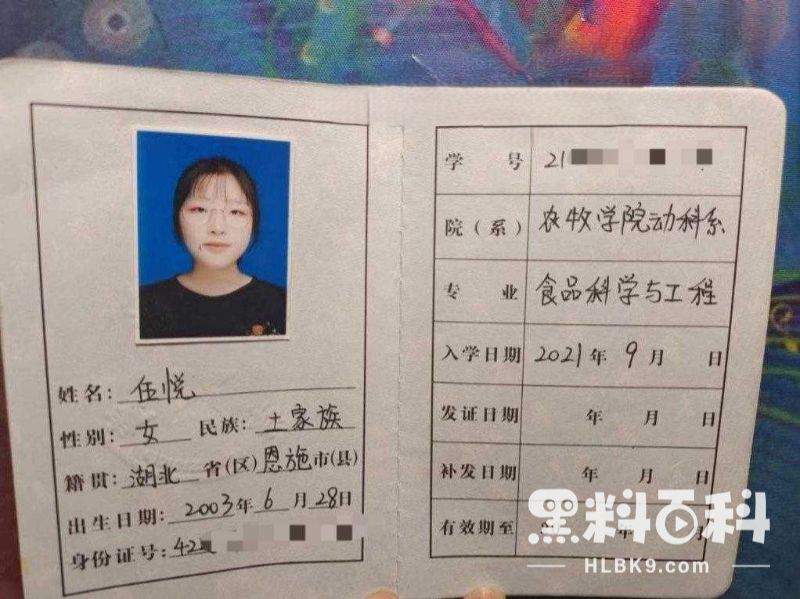 姓名：伍悦
性别：女 民族：土家族
籍贯：湖北省(区)恩施市(县)
出生日期：2003年6月28日
身份证号：42
学号 21
院（系） 农牧学院动科系
专业 食品科学与工程
入学日期 2021年9月 日
发证日期 年 月 日
补发日期 年 月 日
有效期至 年
黑料百科
HLBK9.com